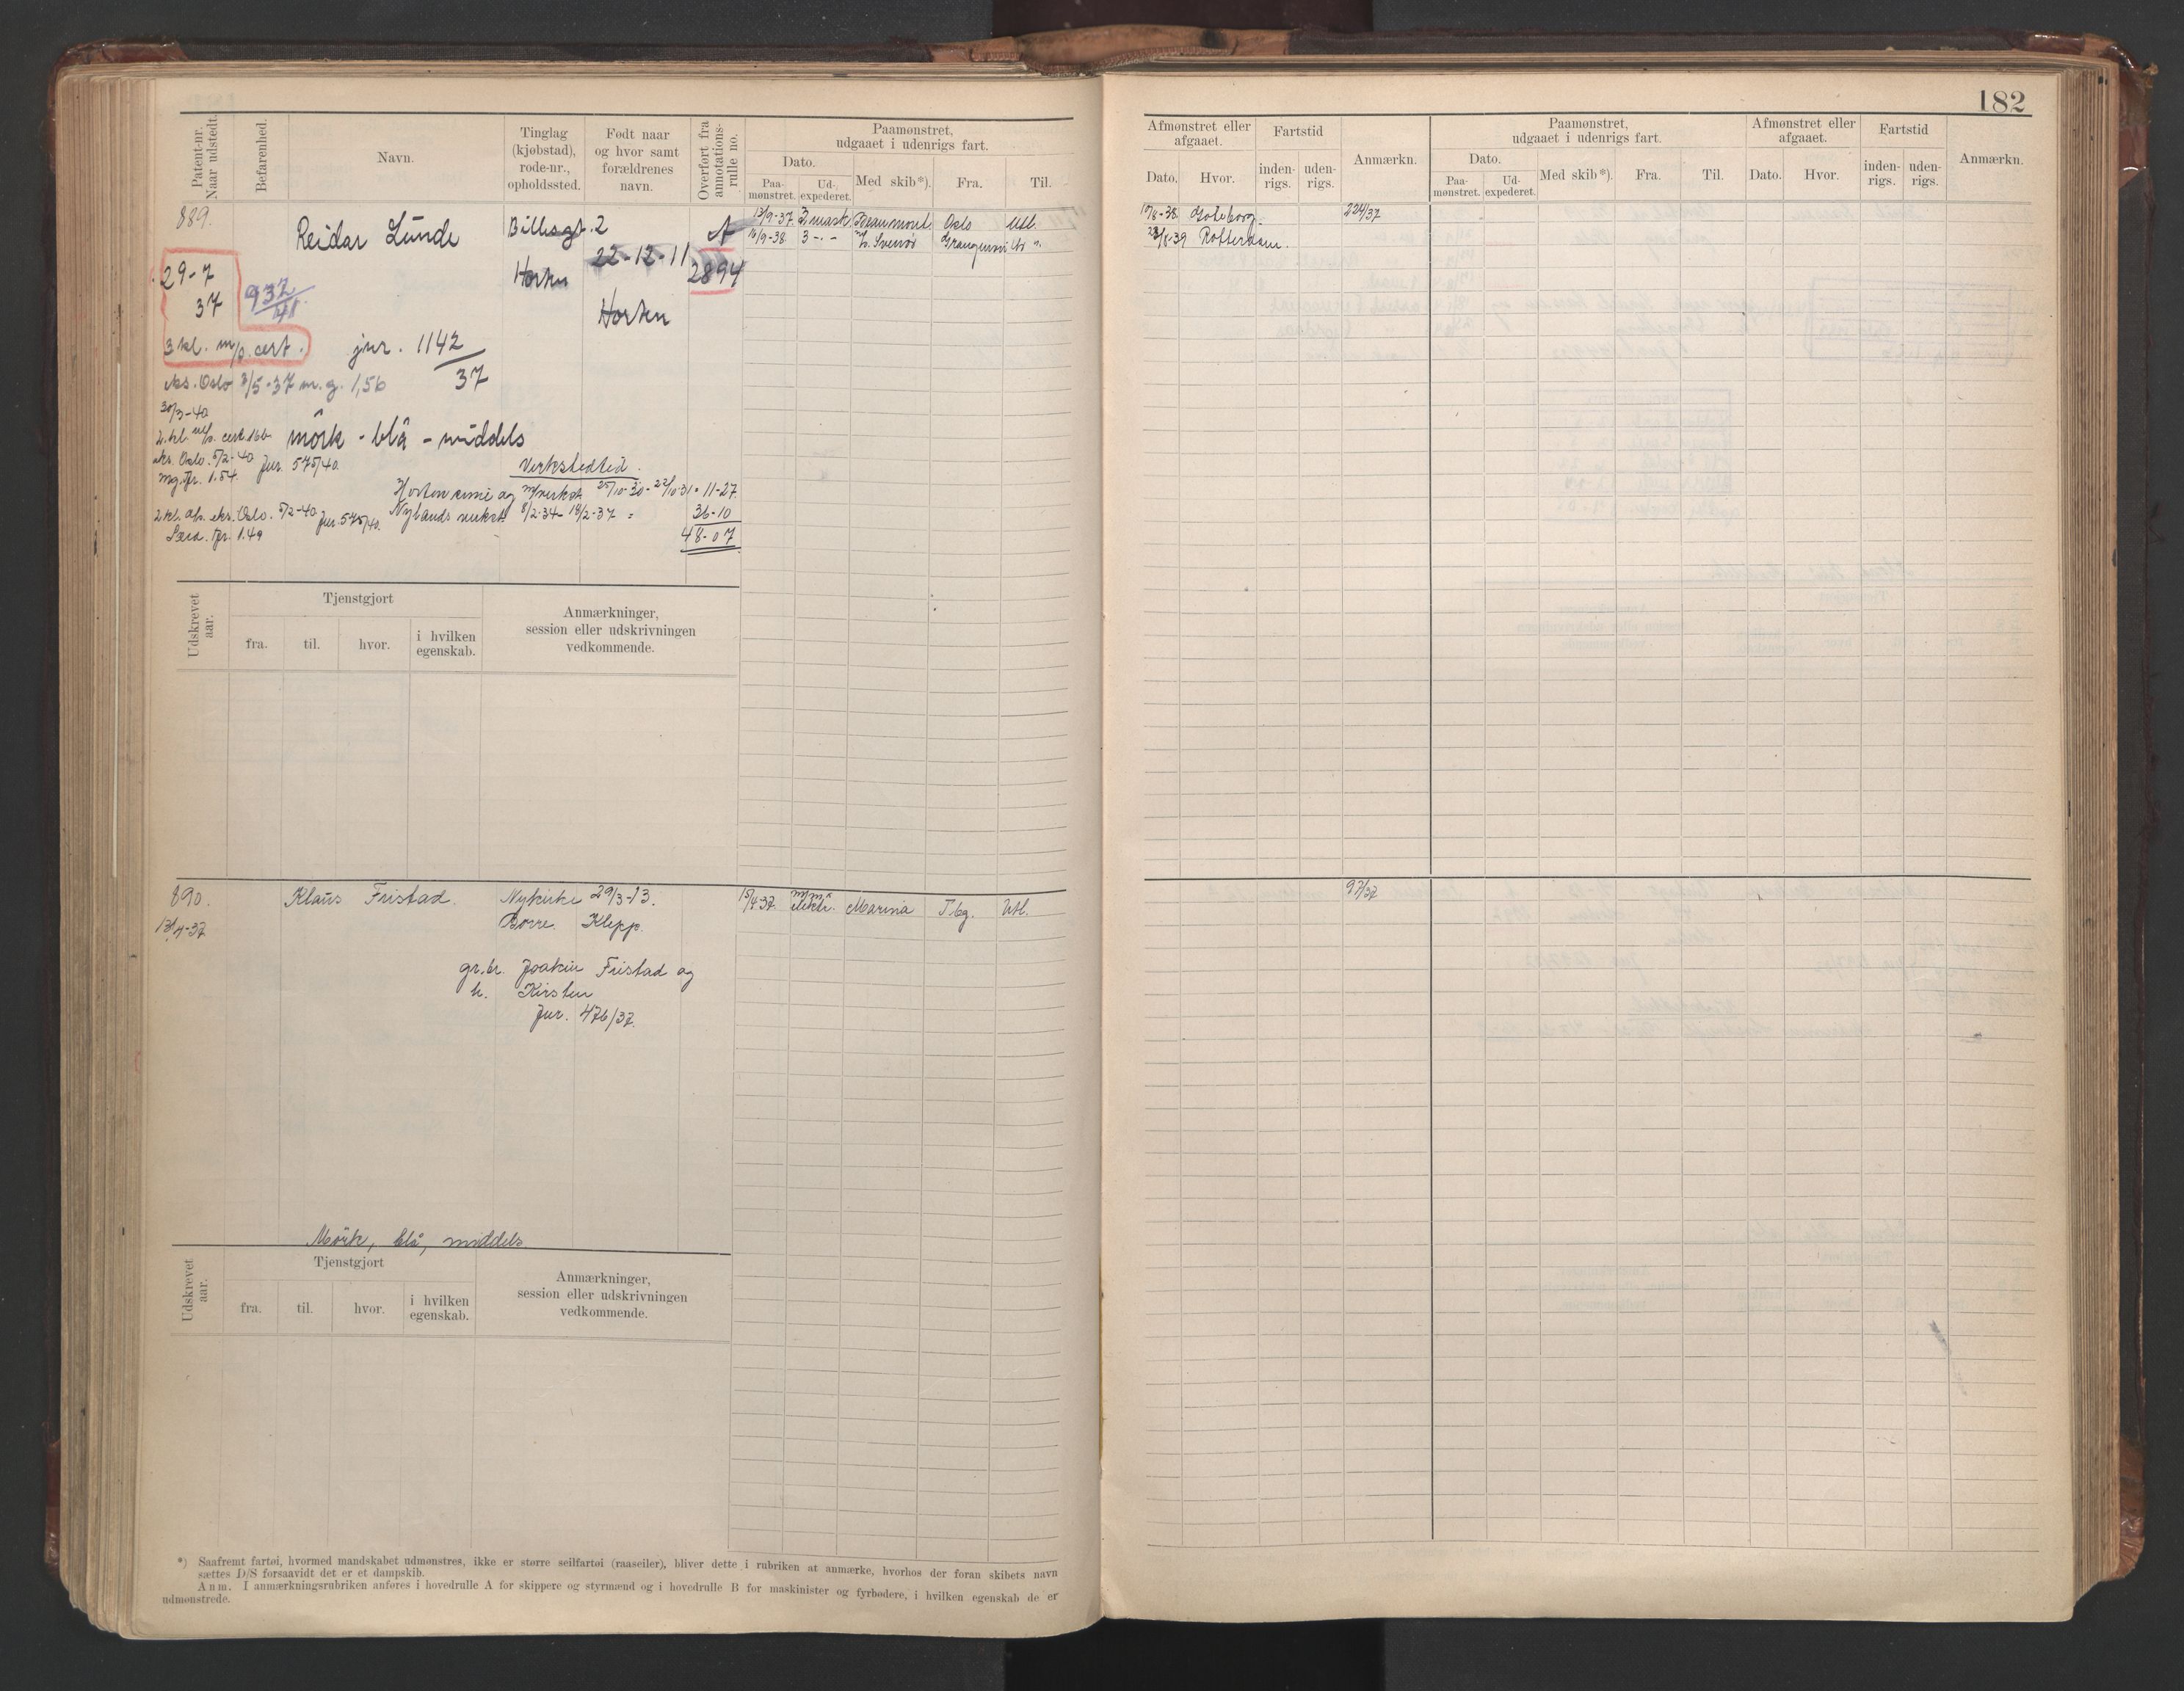 182
Patent-nr. Naar udstedt.
Befarenhed.
Navn.
Tinglag (kjøbstad), rode-nr., opholdssted.
Født naar og hvor samt forældrenes navn.
Overført fra annotations-rulle no.
Paamønstret, udgaaet i udenrigs fart.
Dato.
Paa-mønstret.
Ud-expederet.
Med skib*).
Fra.
Til.
Afmønstret eller afgaaet.
Dato.
Hvor.
Fartstid
inden-rigs.
uden-rigs.
Anmærkn.
Paamønstret, udgaaet i udenrigs fart.
Dato.
Paa-mønstret.
Ud-expederet.
Med skib*).
Fra.
Til.
Afmønstret eller afgaaet.
Dato.
Hvor.
Fartstid
inden-rigs.
uden-rigs.
Anmærkn.
889.
Reidar Lunde
Billesgt. 2
Horten
22-12-11
Horten
A
2894
13/9-37. 2 mask. Beaumont. Oslo Utl.
16/9-38. 3 -.- Grangemouth
10/8-38 Göteborg. 224/37
23/8-39 Rotterdam.
29-7
37
932/41
3 kl. m/p. cert.
jnr. 1142/37
eks. Oslo 3/5-37 m.g. 1,56
30/3-40
2.kl. cert. 166
eks. Oslo. 5/2-40 Jnr. 575/40.
mg. fr. 1.54.
mörk - blå - middels
Verkstedtid.
Horten og m/verkst. 25/10-30 - 22/10-31 = 11-27.
2.kl. eks. Oslo. 5/2-40 Jnr. 575/40. Nylands verkst. 8/2-34 - 18/2-37 = 36-10
fr. 1.49
48-07
Udskrevet aar.
Tjenstgjort
fra.
til.
hvor.
i hvilken egenskab.
Anmærkninger, session eller udskrivningen vedkommende.
890.
13/4-37
Klaus Fristad.
Nykirke
Borre.
29/3-13.
Klepp.
15/4-37. elektr. Marina Tbg. Utl.
97/37
gr.br. Joakim Fristad og
h. Kirsten
Jnr. 476/37.
Mörk, blå, middels
Udskrevet aar.
Tjenstgjort
fra.
til.
hvor.
i hvilken egenskab.
Anmærkninger, session eller udskrivningen vedkommende.
*) Saafremt fartøi, hvormed mandskabet udmønstres, ikke er større seilfartøi (raaseiler), bliver dette i rubriken at anmærke, hvorhos der foran skibets navn
sættes D/S forsaavidt det er et dampskib.
Anm. I anmærkningsrubriken anføres i hovedrulle A for skippere og styrmænd og i hovedrulle B for maskinister og fyrbødere, i hvilken egenskab de er
udmønstrede.